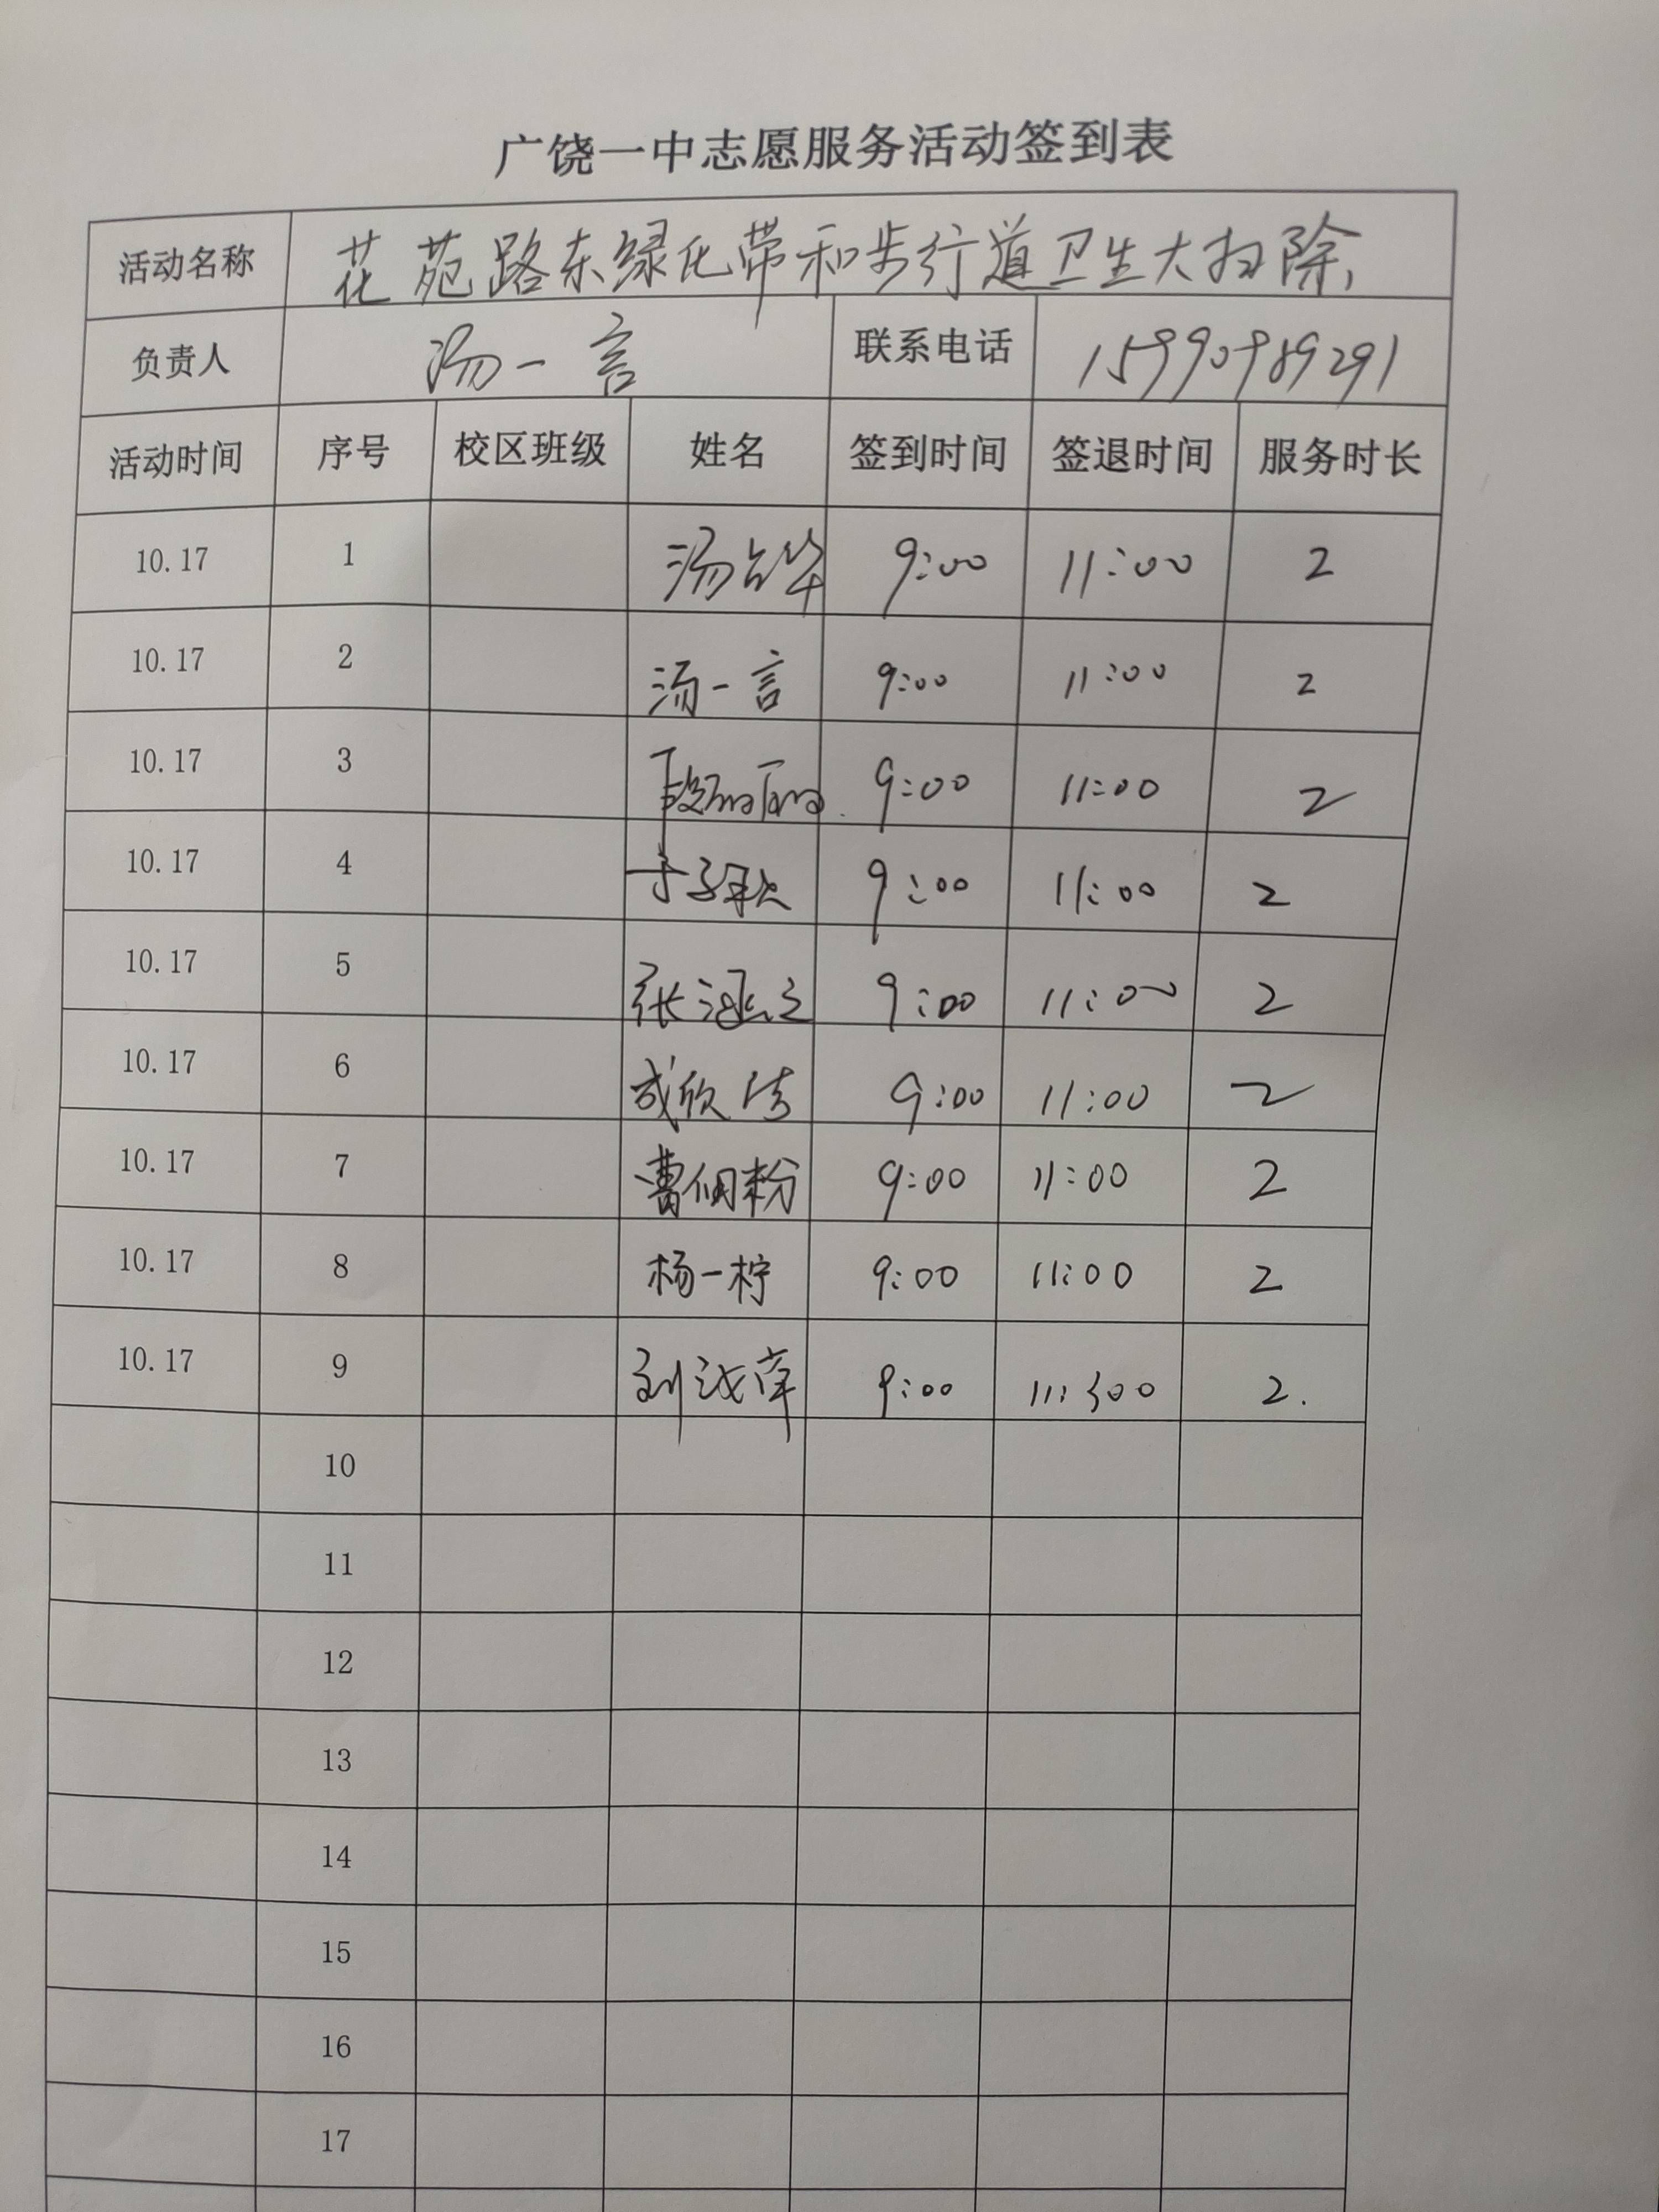 广饶一中志愿服务活动签到表
活动名称 花苑路东绿化带和步行道卫生大扫除
负责人 汤一言 联系电话 15990989291
活动时间 序号 校区班级 姓名 签到时间 签退时间 服务时长
10.17 1 汤 9:00 11:00 2
10.17 2 汤一言 9:00 11:00 2
10.17 3 段丽丽 9:00 11:00 2
10.17 4 9:00 11:00 2
10.17 5 张 9:00 11:00 2
10.17 6 成欣洁 9:00 11:00 2
10.17 7 曹佃粉 9:00 11:00 2
10.17 8 杨一柠 9:00 11:00 2
10.17 9 刘 9:00 2.
10
11
12
13
14
15
16
17